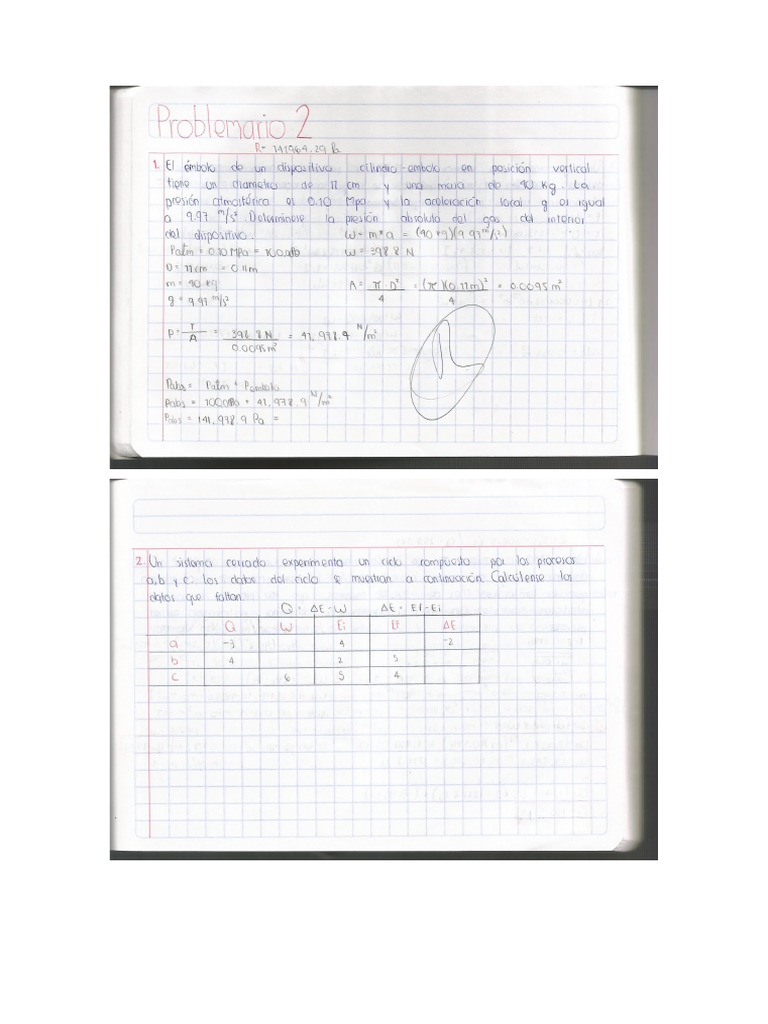 Problemario 2
R= 141964.29 Pa
1. El émbolo de un dispositivo cilindro-embolo en posición vertical
tiene un diametro de 11 cm y una masa de 40 Kg. La
presión atmosférica es 0.10 Mpa y la aceleración local g es igual
a 9.97 m/s². Determinese la presión absoluta del gas del interior
del dispositivo.
W = m*a = (40 kg)(9.97 m/s²)
Patm = 0.10 MPa = 100,000
W = 398.8 N
D = 11 cm = 0.11m
A = π · D² / 4 = (π)(0.11m)² / 4 = 0.0095 m²
m = 40 kg
g = 9.97 m/s²
P = F / A = 398.8 N / 0.0095 m² = 41,978.9 N/m²
Pabs = Patm + Pembolo
Pabs = 100,000 + 41,978.9 N/m²
Pabs = 141,978.9 Pa =
2. Un sistema cerrado experimenta un ciclo compuesto por los procesos
a, b y c. Los datos del ciclo se muestran a continuación. Calcúlense los
datos que faltan.
Q = ΔE - W ΔE = Ef - Ei
Q W Ei Ef ΔE
a -3 4 -2
b 4 2 5
c 6 5 4